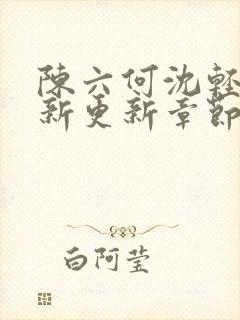 陳六何沈輕
新更新章節
白阿瑩